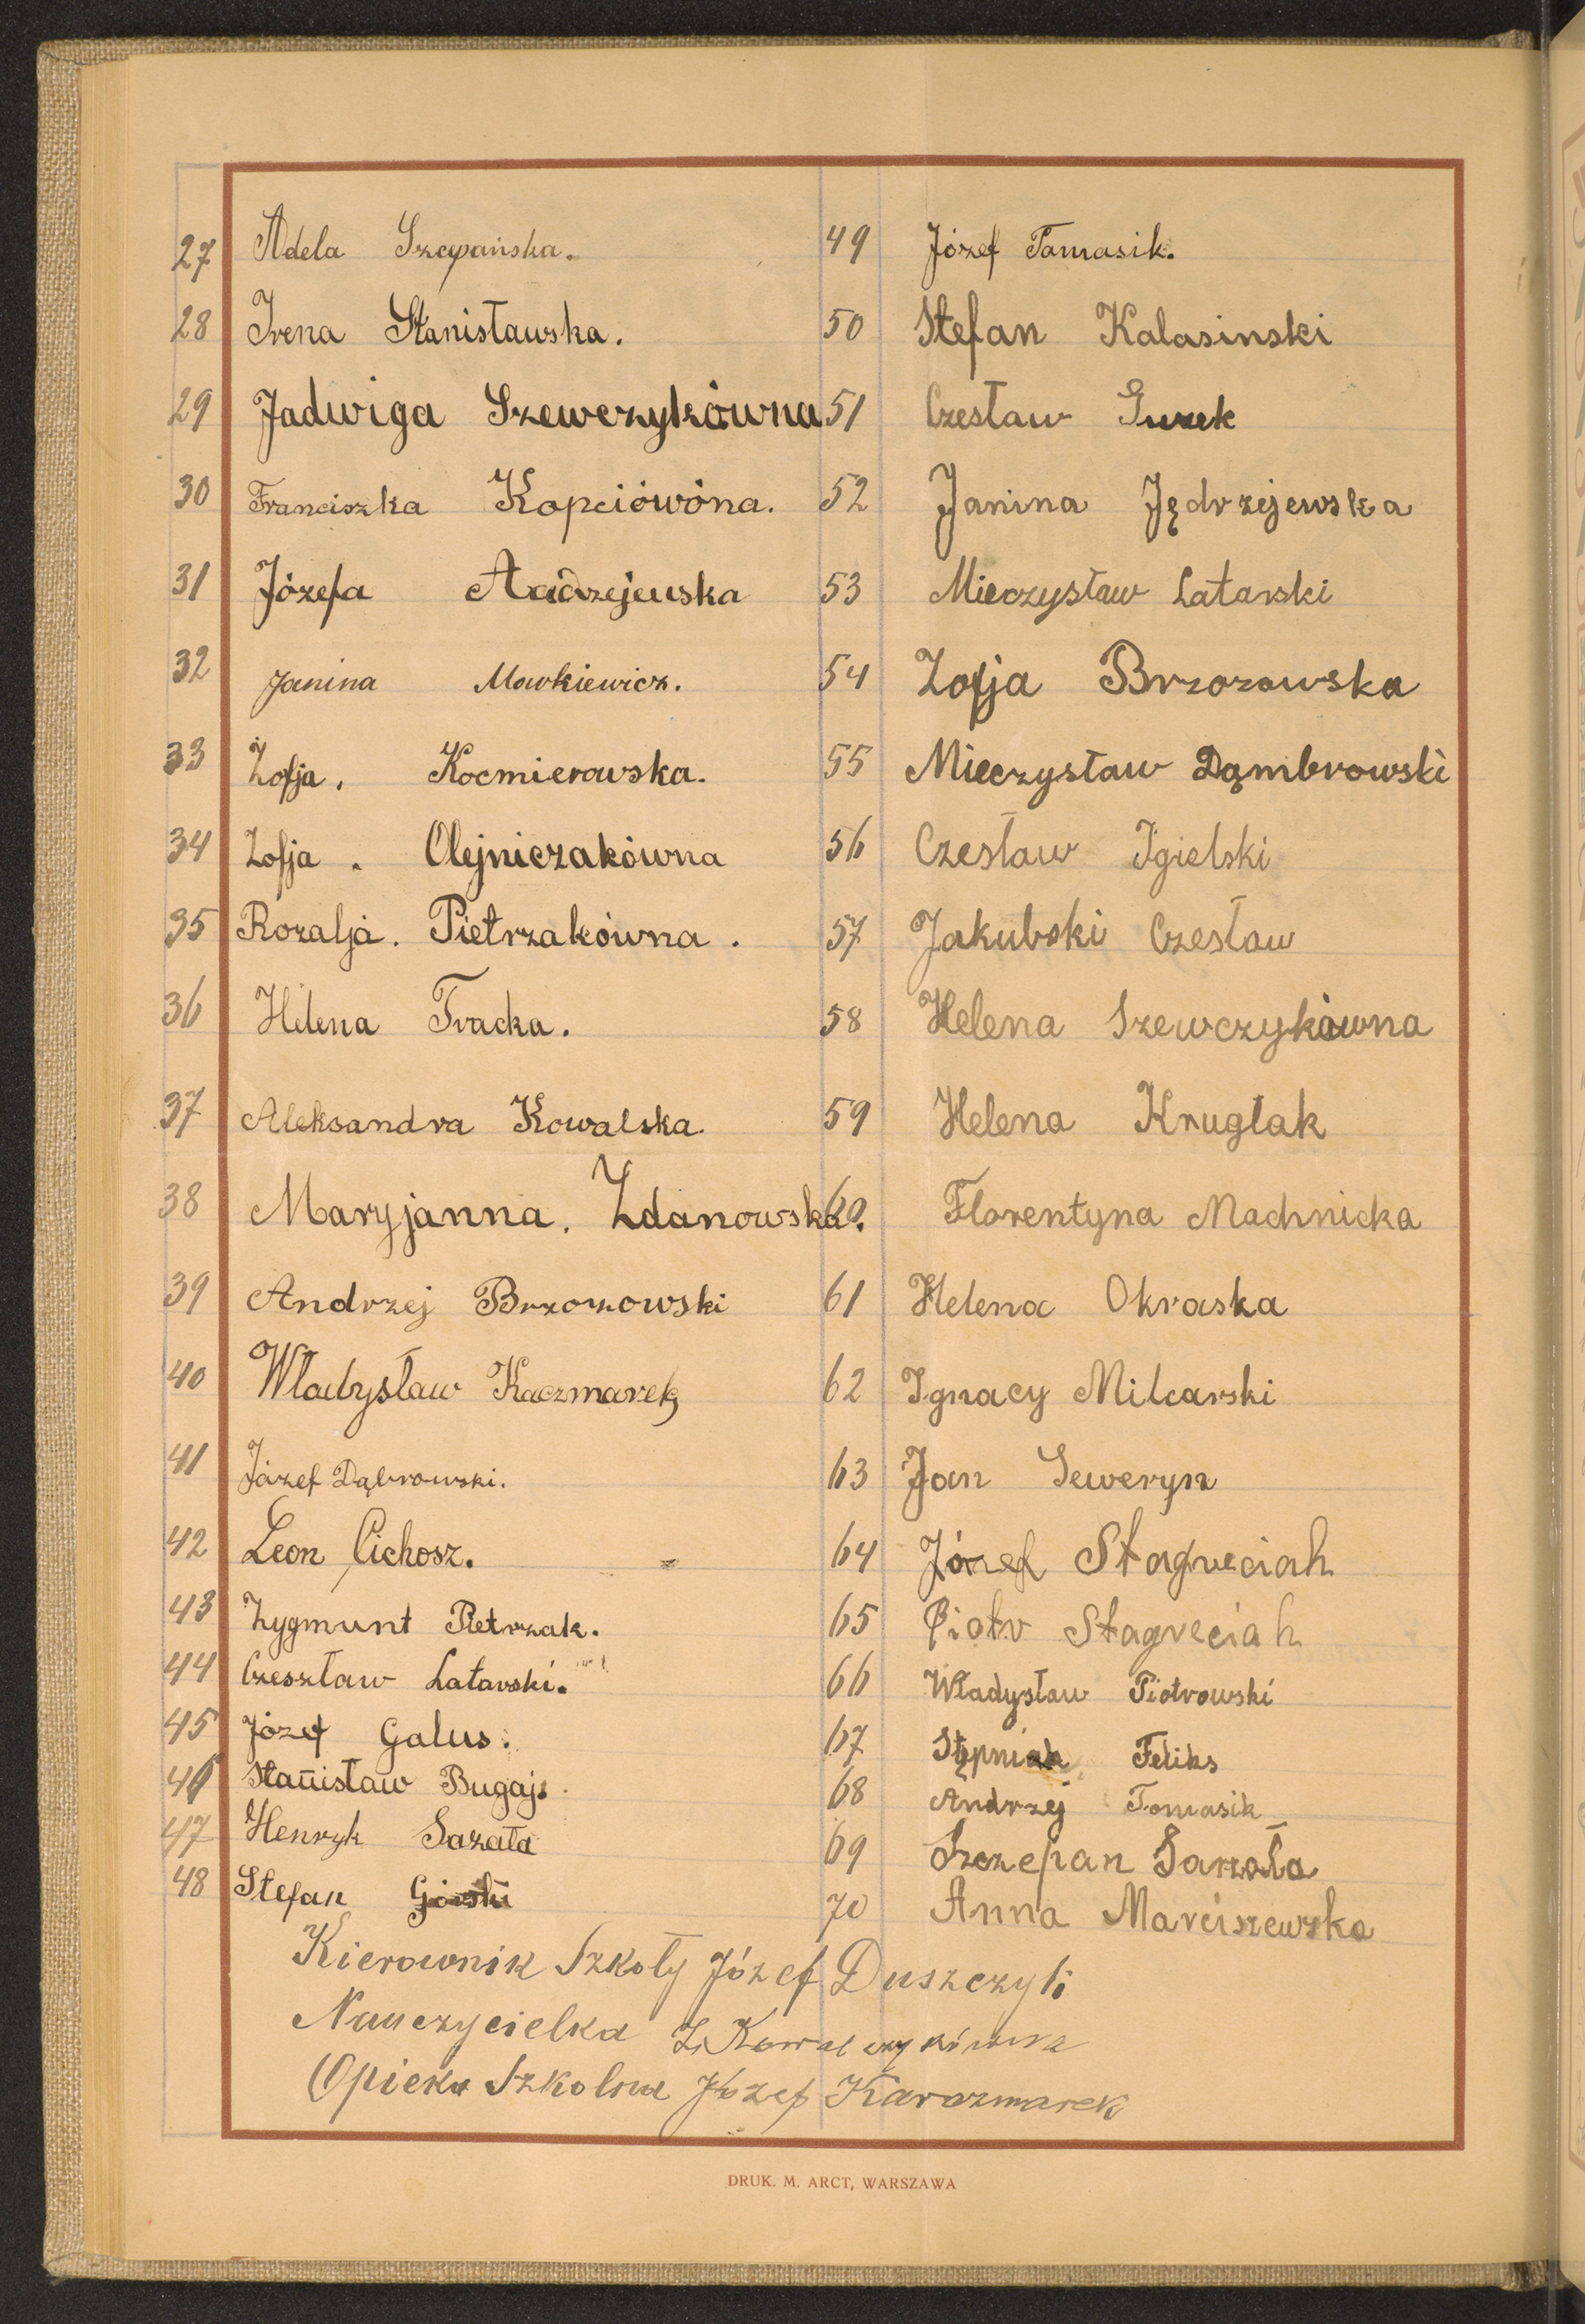 27 Adela Szczepańska.
28 Irena Stanisławska.
29 Jadwiga Szewczykówna
30 Franciszka Kopciówóna.
31 Józefa
32 Janina Mowkiewicz.
33 Zofja. Kocmierowska.
34 Zofja. Olejniczakówna
35 Rozalja. Pietrzakówna.
36 Helena Tracka.
37 Aleksandra Kowalska.
38 Maryjanna. Zdanowska.
39 Andrzej Brzozowski
40 Władysław Kaczmarek
41 Józef Dąbrowski.
42 Leon Cichosz.
43 Zygmunt Pietrzak.
44 Czeszław Latarski.
45 Józef Galus.
46 Stanisław Bugaj.
47 Henryk Sazała
48 Stefan Górski
49 Józef Tomasik.
50 Stefan Kalasinski
51 Czesław Gurek
52 Janina Jędrzejewska
53 Mieczysław Latarski
54 Zofja Brzozowska
55 Mieczysław Dąmbrowski
56 Czesław Igielski
57 Jakubski Czesław
58 Helena Szewczykówna
59 Helena Kruglak
60 Florentyna Machnicka
61 Helena Okraska
62 Ignacy Milcarski
63 Jan Seweryn
64 Józef
65 Piotr
66 Władysław Piotrowski
67 Stępniak Feliks
68 Andrzej Tomasik
69 Szczepan Sazała
70 Anna Marciszewska
Kierownik Szkoły Józef Duszczyk
Nauczycielka Z. Kowalczykówna
Opieka Szkolna Józef Karczmarek
DRUK. M. ARCT, WARSZAWA